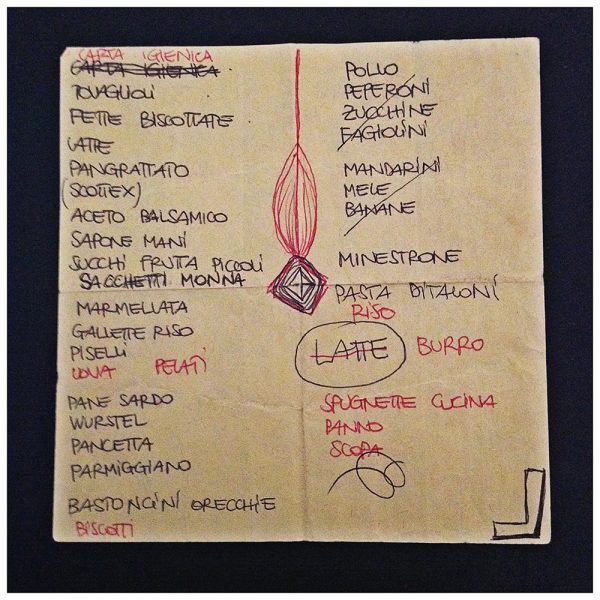 CARTA IGIENICA
CARTA IGIENICA
TOVAGLIOLI
FETTE BISCOTTATE
LATTE
PANGRATTATO
(SCOTTEX)
ACETO BALSAMICO
SAPONE MANI
SUCCHI FRUTTA PICCOLI
SACCHETTI MONNA
MARMELLATA
GALLETTE RISO
PISELLI
UOVA PELATI
PANE SARDO
WURSTEL
PANCETTA
PARMIGGIANO
BASTONCINI ORECCHIE
BISCOTTI
POLLO
PEPERONI
ZUCCHINE
FAGIOLINI
MANDARINI
MELE
BANANE
MINESTRONE
PASTA DITALONI
RISO
LATTE BURRO
SPUGNETTE CUCINA
PANNO
SCOPA